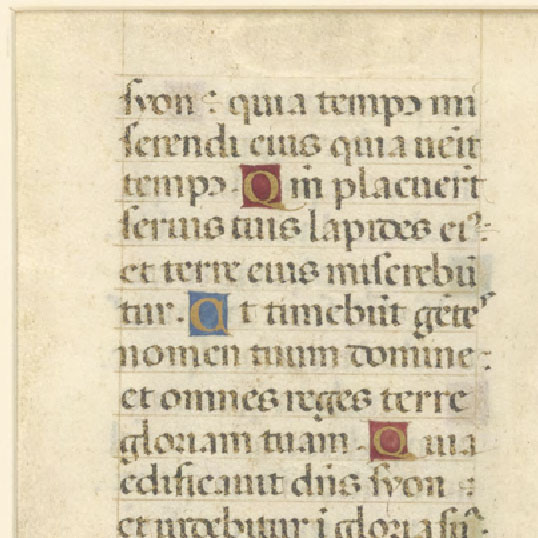 syon : quia tempꝰ mi
serendi eius quia uenit
tempꝰ. Qm̄ placuerūt
seruis tuis lapides eiꝰ:
et terre eius miserebū
tur. Et timebūt gētes
nomen tuum domine:
et omnes reges terre
gloriam tuam. Quia
edificauit dn̄s syon :
et uidebitur ī gloria suā: